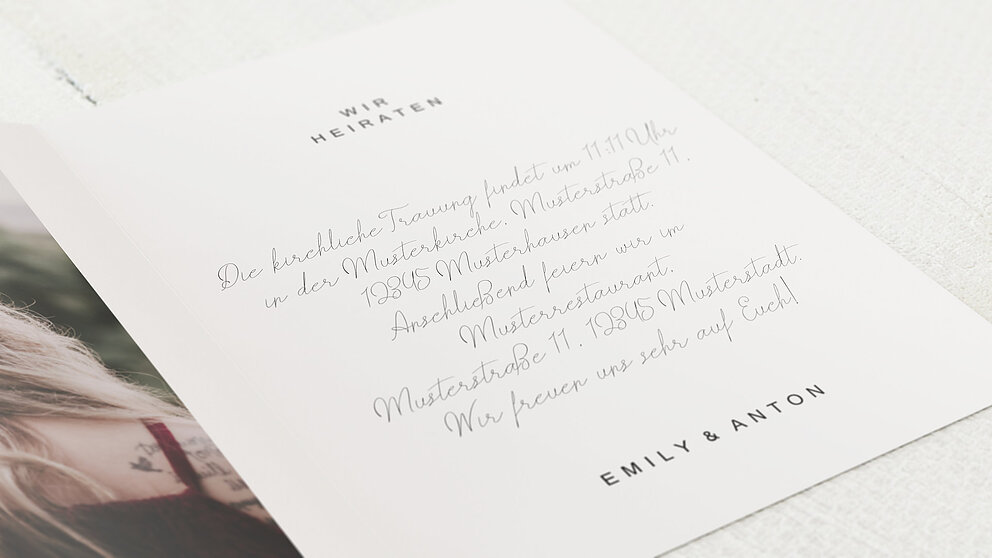 WIR
HEIRATEN
Die kirchliche Trauung findet um 11:11 Uhr
in der Musterkirche. Musterstraße 11.
12345 Musterhausen statt.
Anschließend feiern wir im
Musterrestaurant.
Musterstraße 11. 12345 Musterstadt.
Wir freuen uns sehr auf Euch!
EMILY & ANTON